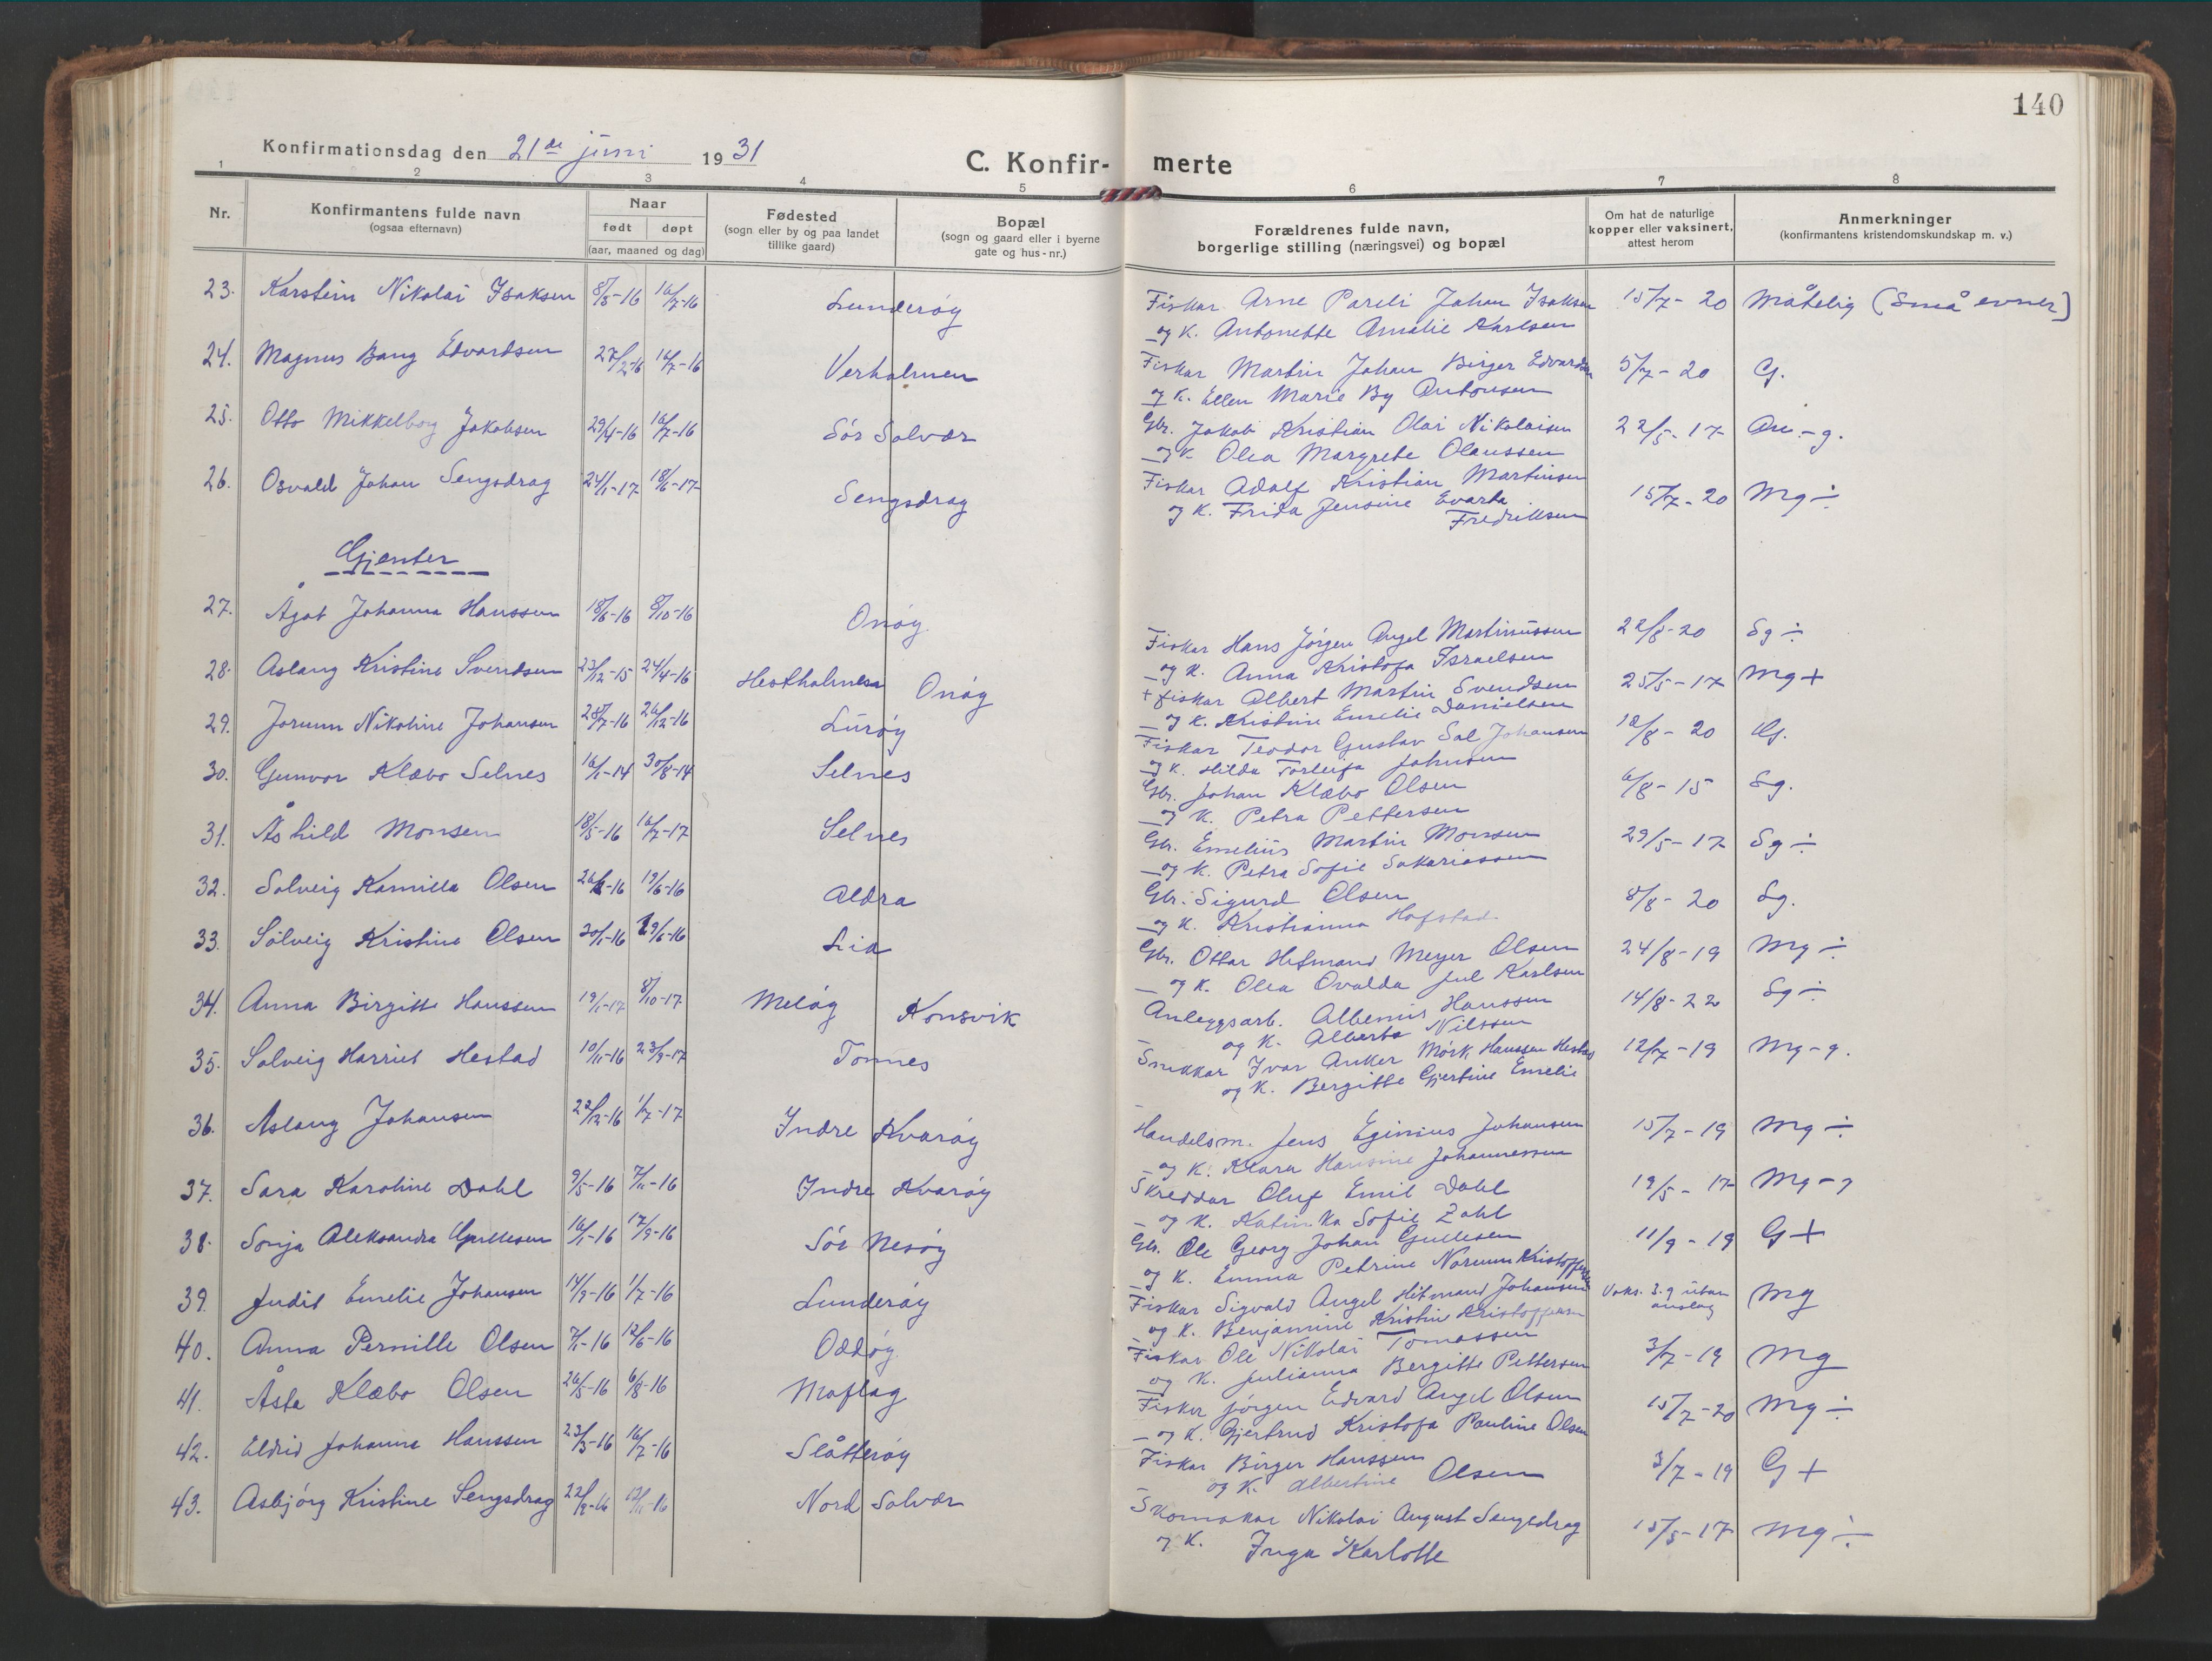 140
Konfirmationsdag den 21de juni 1931
C. Konfirmerte
1 2 3 4 5 6 7 8
Nr.
Konfirmantens fulde navn
(ogsaa efternavn)
Naar
født døpt
(aar, maaned og dag)
Fødested
(sogn eller by og paa landet
tillike gaard)
Bopæl
(sogn og gaard eller i byerne
gate og hus-nr.)
Forældrenes fulde navn,
borgerlige stilling (næringsvei) og bopæl
Om hat de naturlige
kopper eller vaksinert,
attest herom
Anmerkninger
(konfirmantens kristendomskundskap m. v.)
23. Karstein Nikolai Isaksen 8/5-16 16/7-16 Lunderøy Fiskar Arne Pareli Johan Isaksen 15/7-20 Måtelig (små evner)
og K. Antonette Amalie Karlsen
24. Magnus Bang Edvardsen 27/2-16 16/7-16 Verholmen Fiskar Martin Johan Birger Edvardsen 5/7-20 G.
og K. Ellen Marie By Antonsen
25. Otto Mikkelborg Jakobsen 29/4-16 16/7-16 Sør Solvær Gbr. Jakob Kristian Olai Nikolaisen 22/5-17
og K. Olea Margrete Olaussen
26. Osvald Johan Sengsdrag 24/1-17 18/6-17 Sengsdrag Fiskar Adolf Kristian Martinsen 15/7-20 Mg ÷
og K. Frida Jensine Evarda
Fredriksen
Gjenter
27. Ågot Johanna Hanssen 18/6-16 8/10-16 Onøy Fiskar Hans Jørgen Angel Martinussen 22/8-20 Sg ÷
og K. Anna Kristofa Israelsen
28. Aslaug Kristine Svendsen 23/12-15 24/4-16 Hestholmen Onøy + fiskar Albert Martin Svendsen 25/5-17 Mg +
og K. Kristine Emelie Danielsen
29. Jorunn Nikoline Johansen 28/7-16 26/12-16 Lurøy Fiskar Teodor Gustav Sal Johansen 18/8-20 G.
og K. Hilda Torleifa Johnsen
30. Gunvor Klæbo Selnes 16/1-14 30/8-14 Selnes Gbr. Johan Klæbo Olsen 6/8-15 Sg.
og K. Petra Pettersen
31. Åshild Monsen 18/5-16 16/7-17 Selnes Gbr. Emelius Martin Monsen 29/5-17 Sg ÷
og K. Petra Sofie Sakariassen
32. Solveig Kamilla Olsen 19/6-16 Aldra Gbr. Sigurd Olsen 8/8-20 Sg.
og K. Kristianna Hofstad
33. Sølveig Kristine Olsen 20/1-16 19/6-16 Lia Gbr. Ottar Hefmand Meyer Olsen 24/8-19 Mg ÷
og K. Olea Ovalda Jul Karlsen
34. Anna Birgitte Hanssen 19/1-17 8/10-17 Meløy Konsvik Anleggsarb. Albemis Hanssen 14/8-22 Sg ÷
og K. Alberta Nilssen
35. Solveig Harriet Hestad 10/11-16 23/9-17 Tonnes Snekkar Ivar Anker Mørk Hanssen Hestad 12/7-19 Mg-g.
og K. Bergitte Gjertine Emelie
36. Aslaug Johansen 22/12-16 1/7-17 Indre Kvarøy Handelsm. Jens Eginius Johansen 15/7-19 Mg ÷
og K. Klara Hansine Johannessen
37. Sara Karoline Dahl 9/5-16 7/11-16 Indre Kvarøy Skreddar Oluf Emil Dahl 19/5-17 Mg-g
og K. Katinka Sofie Zahl
38. Sonja Aleksandra Gullesen 16/1-16 17/9-16 Sør Nesøy Gbr. Ole Georg Johan Gullesen 11/9-19 G +
og K. Emma Petrine Norum Kristoffersen
39. Judit Emelie Johansen 14/9-16 1/7-16 Lunderøy Fiskar Sigvald Angel Hitmand Johansen Vaks. 3. g utan Mg
anslag
og K. Benjamine Kristin Kristoffersen
40. Anna Pernille Olsen 7/1-16 12/6-16 Oddøy Fiskar Ole Nikolai Tomassen 3/7-19 Mg
og K. Julianna Bergitte Pettersen
41. Åsta Klæbo Olsen 26/5-16 6/8-16 Moflag Fisker Jørgen Edvard Angel Olsen 15/7-20 Mg ÷
og K. Gjertrud Kristofa Pauline Olsen
42. Eldrid Johanna Hanssen 23/3-16 16/7-16 Slåtterøy Fiskar Birger Hanssen 3/7-19 G +
og K. Albertine Olsen
43. Asbjørg Kristine Sengsdrag 12/11-16 Nord Solvær Skomakar Nikolai August Sengsdrag 15/5-17 Mg ÷
og K. Inga Karlotte